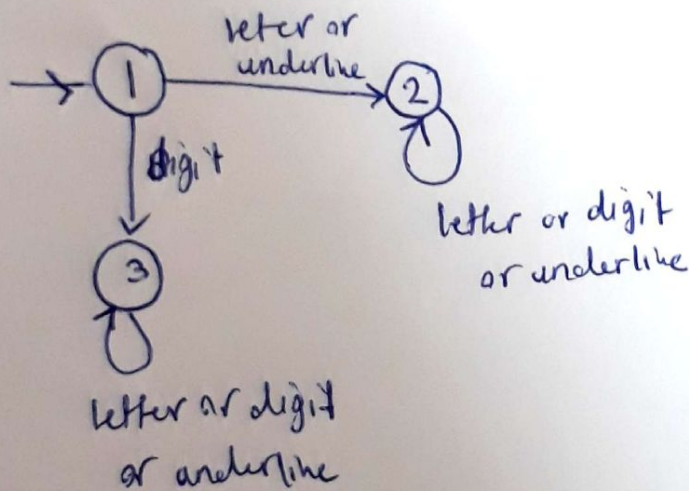 leter or
underline
1
2
digit
letter or digit
or underline
3
letter or digit
or underline